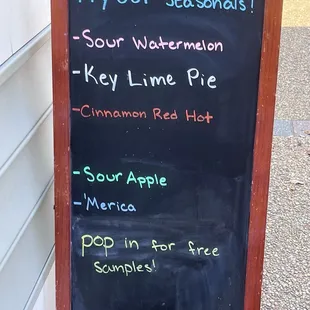 Try our seasonals!
-Sour Watermelon
-Key Lime Pie
-Cinnamon Red Hot
-Sour Apple
-'Merica
pop in for free
samples!